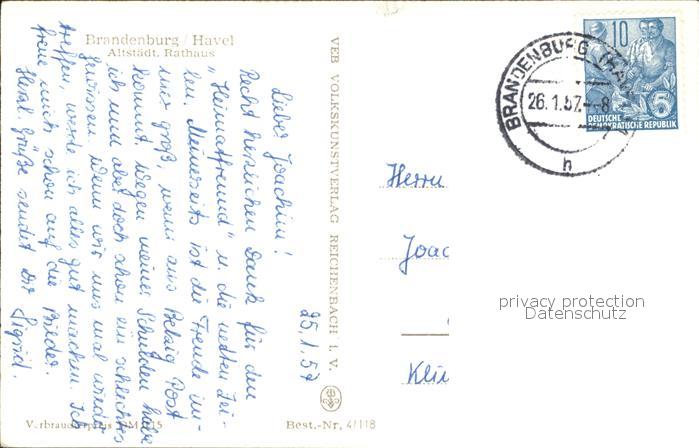 Brandenburg / Havel
Altstädt. Rathaus
25.1.57
Lieber Joachim!
Recht herzlichen Dank für den
"Heimatfreund" u. die netten Zei-
len. Meinerseits ist die Freude im-
mer groß, wenn aus Belzig Post
kommt. Wegen meiner Schulden habe
ich nun aber doch schon ein schlechtes
Gewissen. Wenn wir uns mal wieder
treffen, werde ich alles gut machen. Ich
freue mich schon auf die Bilder.
Herzl. Grüße sendet Dir Sigrid.
Verbraucherpreis DM 0,15
Best.-Nr. 4/118
VEB VOLKSKUNSTVERLAG REICHENBACH I. V.
10
DEUTSCHE
DEMOKRATISCHE REPUBLIK
BRANDENBURG (HAVEL)
26.1.57.--8
h
Herrn
Joac
Klei
privacy protection
Datenschutz